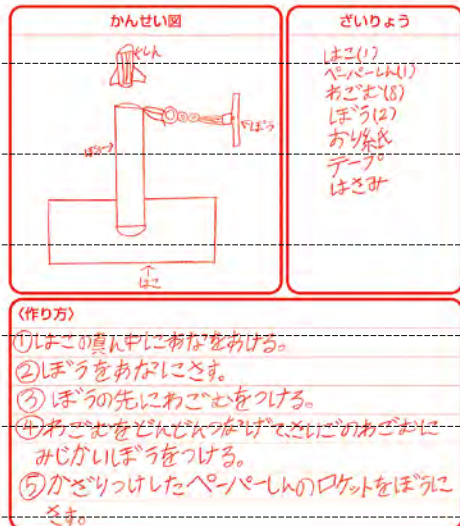 かんせい図
ぺしん
ぼう
ぼう
はこ
ざいりょう
はこ(1)
ペーパーしん(1)
わごむ(8)
ぼう(2)
おり紙
テープ
はさみ
〈作り方〉
①はこの真ん中にあなをあける。
②ぼうをあなにさす。
③ぼうの先にわごむをつける。
④わごむをどんどんつなげて、さいごのわごむに
みじかいぼうをつける。
⑤かざりつけしたペーパーしんのロケットをぼうに
さす。